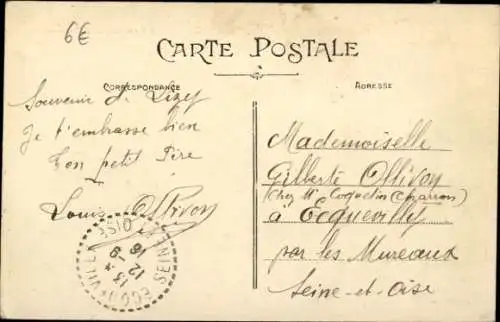 6€
CARTE POSTALE
CORRESPONDANCE
ADRESSE
Souvenir d' Lizy
Je t'embrasse bien
Ton petit Père
Louis Ollivon
Mademoiselle
Gilberte Ollivon
(chez Mr Coquelin Charron)
à Ecquevilly
par les Mureaux
Seine-et-Oise
ECQUEVILLY
SEINE ET OISE
18-9
12
13